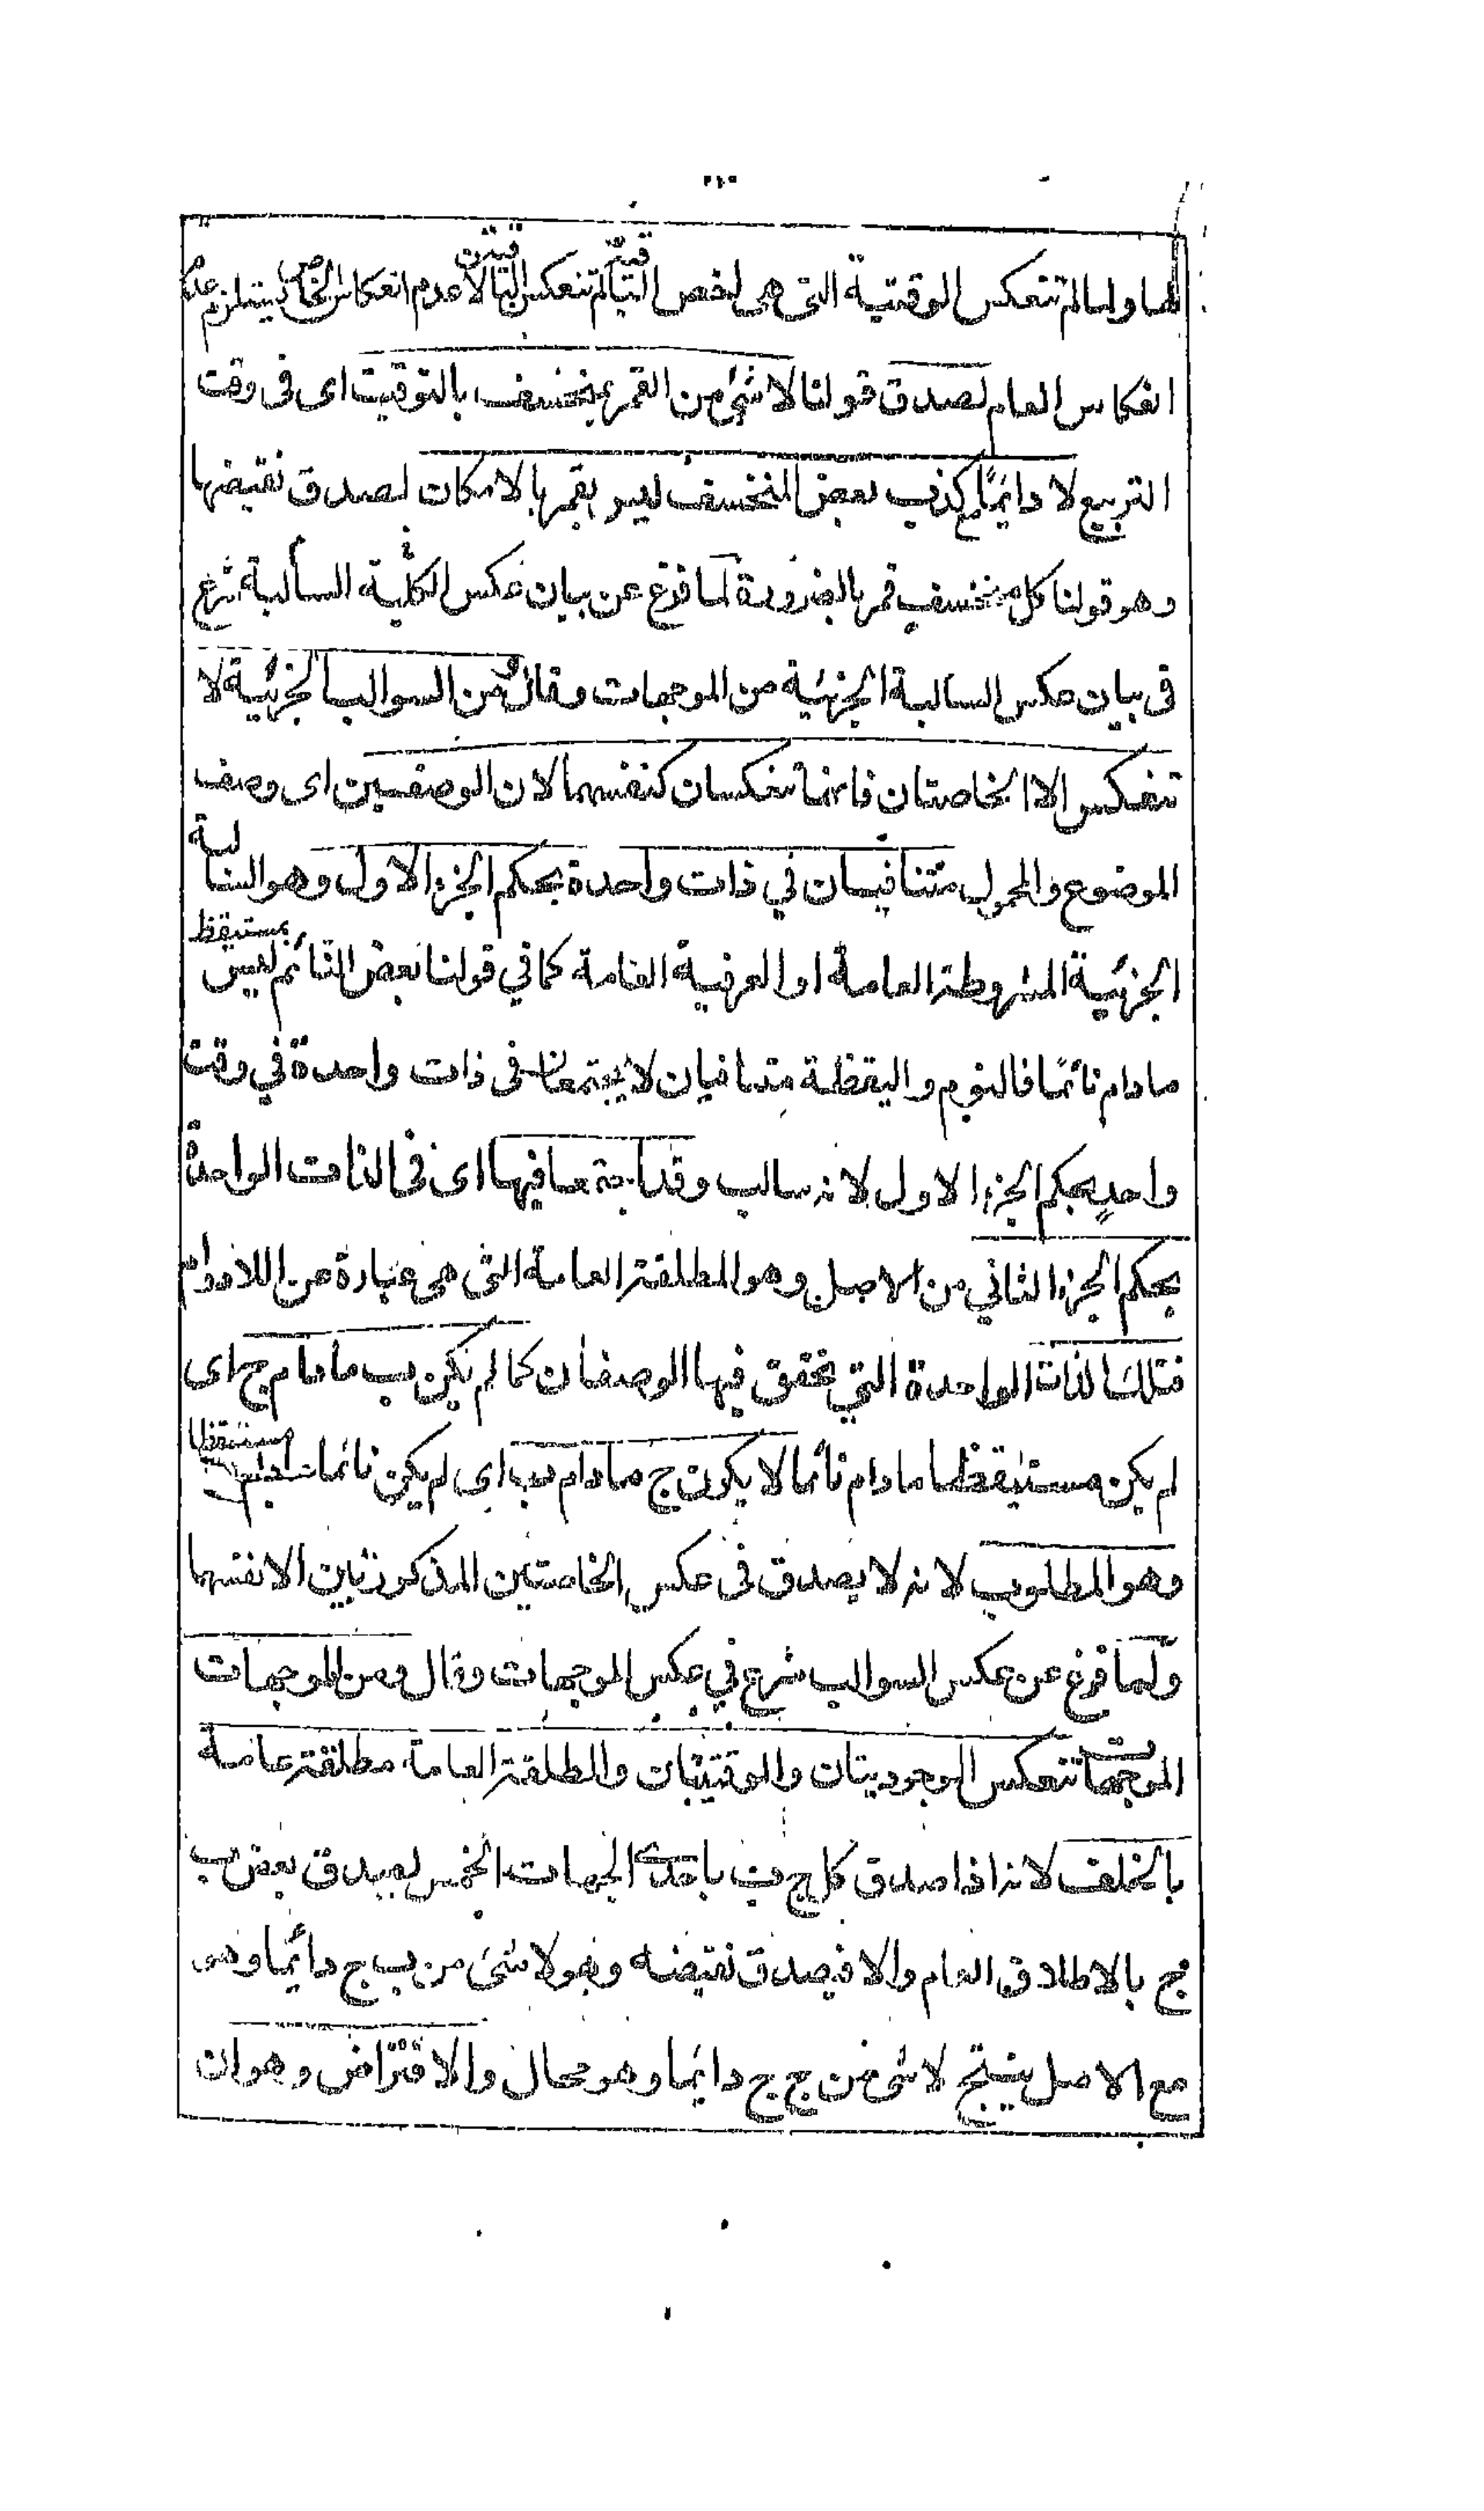 لها ولما لم تنعكس الوقتية التي هي اخص البتا قيتين لم تنعكس البتا قيتين لان عدم انعكاس الخاص يستلزم عدم
انعكاس العام لصدق قولنا لا شئ من القمر بمنخسف بالتوقيت اى فى وقت
التربيع لا دائمًا مع كذب بعض المنخسف ليس بقمر بالامكان لصدق نقيضها
وهو قولنا كل منخسف قمر بالضرورة لما فرغ عن بيان عكس الكلية السالبة شرع
فى بيان عكس السالبة الجزئية من الموجهات وقال ومن السوالب الجزئية لا
تنعكس الا الخاصتان فانهما تنعكسان كنفسهما لان الوصفين اى وصف
الموضوع والمحمول متنافيان في ذات واحدة بحكم الجزء الاول وهو السالبة
الجزئية المشروطة العامة او العرفية العامة كما في قولنا بعض النائم ليس بمستيقظ
ما دام نائمًا فالنوم واليقظة متنافيان لا يجتمعان فى ذات واحدة في وقت
واحدٍ بحكم الجزء الاول لانه سالب وقد اجتمعا فيها اى فى الذات الواحدة
بحكم الجزء الثاني من الاصل وهو المطلقة العامة التى هى عبارة عن اللادوام
فتلك الذات الواحدة التي تحقق فيها الوصفان كما لم يكن ب ما دام ج اى
لم يكن مستيقظا ما دام نائما لا يكون ج ما دام ب اى لم يكن نائما ما دام مستيقظا
وهو المطلوب لانه لا يصدق فى عكس الخاصتين المذكورتين الا نفسها
ولما فرغ عن عكس السوالب شرع في عكس الموجهات وقال ومن الموجهات
الموجهات تنعكس الوجوديتان والوقتيتان والمطلقة العامة مطلقة عامة
بالخلف لانه اذا صدق كل ج ب باحدى الجهات الخمس لصدق بعض ب
ج بالاطلاق العام والا فيصدق نقيضه وهو لا شئ من ب ج دائمًا وهو
مع الاصل ينتج لا شئ من ج ج دائما وهو محال والافتراض وهو ان